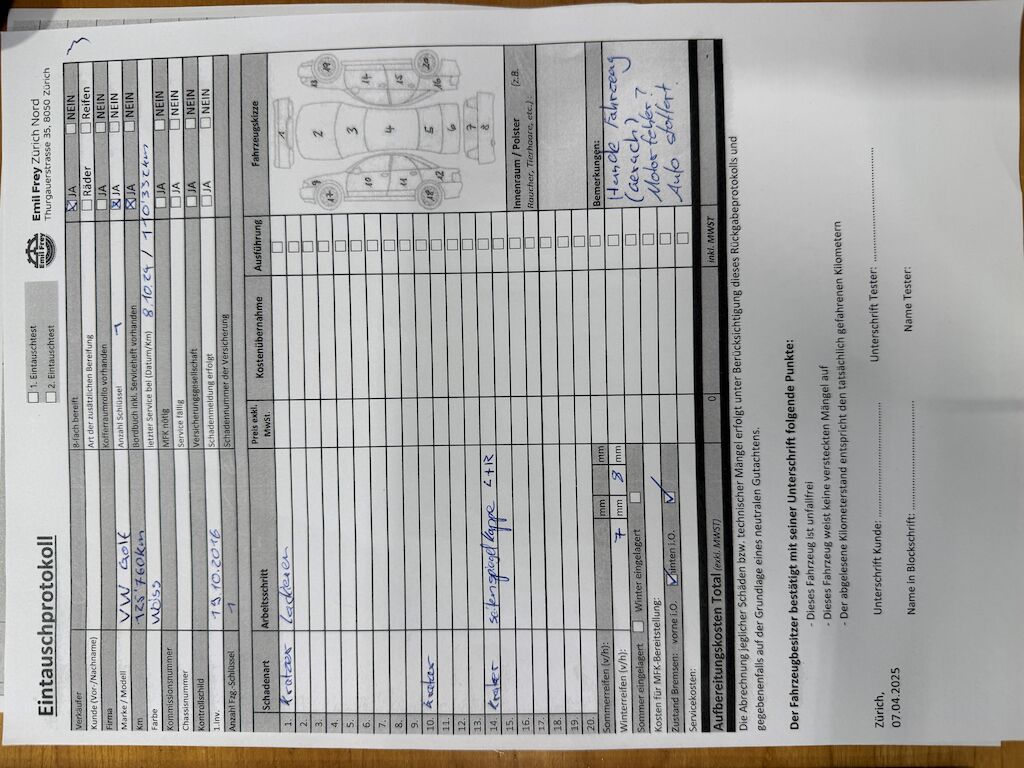 Eintauschprotokoll
☐ 1. Eintauschtest
☐ 2. Eintauschtest
Emil Frey
Emil Frey Zürich Nord
Thurgauerstrasse 35, 8050 Zürich
Verkäufer
Kunde (Vor-/Nachname)
Firma
Marke / Modell VW Golf
Km 125'760km
Farbe Weiss
Kommissionsnummer
Chassisnummer
Kontrollschild
1.Inv. 19.10.2016
Anzahl Fzg.-Schlüssel 1
8-fach bereift ☒ JA ☐ NEIN
Art der zusätzlichen Bereifung ☐ Räder ☐ Reifen
Kofferraumrollo vorhanden ☐ JA ☐ NEIN
Anzahl Schlüssel 1 ☒ JA ☐ NEIN
Bordbuch inkl. Serviceheft vorhanden ☒ JA ☐ NEIN
letzter Service bei (Datum/Km) 8.10.24 / 110'332km
MFK nötig ☐ JA ☐ NEIN
Service fällig ☐ JA ☐ NEIN
Versicherungsgesellschaft ☐ JA ☐ NEIN
Schadenmeldung erfolgt ☐ JA ☐ NEIN
Schadennummer der Versicherung
Schadenart Arbeitsschritt Preis exkl. MwSt. Kostenübernahme Ausführung Fahrzeugskizze
1. Kratzer Lackieren
2.
3.
4.
5.
6.
7.
8.
9.
10. Kratzer
11.
12.
13.
14. Kratzer seitenspiegelkappe L+R
15.
16.
17.
18.
19.
20.
13 19 14 15 20 16
1 2 3 4 5 6 7 8
9 17 10 11 18 12
Innenraum / Polster (z.B. Raucher, Tierhaare, etc.):
Bemerkungen:
Hunde Fahrzeug
Gerach?
Motorfehler?
Auto stottert
Sommerreifen (v/h): mm mm
Winterreifen (v/h): 7 mm 8 mm
Sommer eingelagert ☐ Winter eingelagert ☐
Kosten für MFK-Bereitstellung:
Zustand Bremsen: vorne i.O. ☑ hinten i.O. ☑
Servicekosten:
Aufbereitungskosten Total (exkl. MWST) 0 inkl. MWST -
Die Abrechnung jeglicher Schäden bzw. technischer Mängel erfolgt unter Berücksichtigung dieses Rückgabeprotokolls und
gegebenenfalls auf der Grundlage eines neutralen Gutachtens.
Der Fahrzeugbesitzer bestätigt mit seiner Unterschrift folgende Punkte:
- Dieses Fahrzeug ist unfallfrei
- Dieses Fahrzeug weist keine versteckten Mängel auf
- Der abgelesene Kilometerstand entspricht den tatsächlich gefahrenen Kilometern
Zürich,
07.04.2025
Unterschrift Kunde: ..............................
Unterschrift Tester: ..............................
Name in Blockschrift: ..............................
Name Tester: